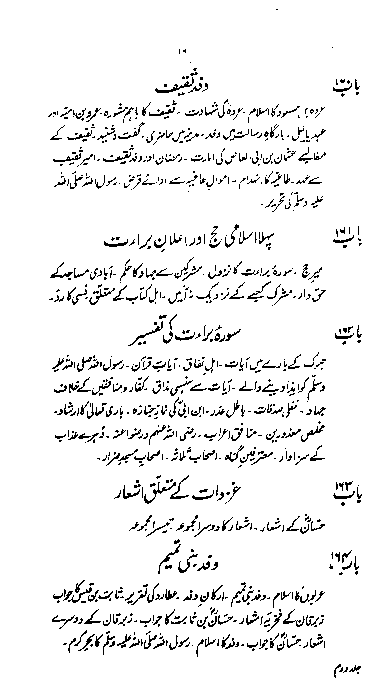 ۱۶
باب ۱۶۰
وفد ثقیف
عروہ بن مسعود کا اسلام ۔ عروہ کی شہادت ۔ ثقیف کا باہم مشورہ ۔ عمرو بن امیہ اور
عبد یالیل ۔ بارگاہ رسالت میں وفد ۔ مدینہ میں حاضری ۔ گفت و شنید ۔ ثقیف کے
مطالبے عثمان بن ابی العاص کی امارت ۔ رمضان اور وفد ثقیف ۔ امیر ثقیف
سے عہد ۔ طاغیہ کا انہدام ۔ اموالِ طاغیہ سے ادائے قرض ۔ رسول اللہ صلی اللہ
علیہ وسلم کی تحریر ۔
باب ۱۶۱
پہلا اسلامی حج اور اعلانِ براءت
میر حج ۔ سورۂ براءت کا نزول ۔ مشرکین سے جہاد کا حکم ۔ آبادی مساجد کے
حق دار ۔ مشرک کعبے کے نزدیک نہ آئیں ۔ اہل کتاب کے متعلق نسی کا رد ۔
باب ۱۶۲
سورۂ براءت کی تفسیر
تبوک کے بارے میں آیات ۔ اہل نفاق ۔ آیاتِ قرآن ۔ رسول اللہ صلی اللہ علیہ
وسلم کو ایذا دینے والے ۔ آیات سے ہنسی مذاق ۔ کفار و منافقین کے خلاف
جہاد ۔ نفلی صدقات ۔ باطل عذر ۔ ابن ابی کی نماز جنازہ ۔ باری تعالیٰ کا ارشاد ۔
مخلص معذورین ۔ منافق اعراب ۔ رضی اللہ عنہم ورضوا عنہ ۔ دُہرے عذاب
کے سزاوار ۔ معترفینِ گناہ ۔ اصحاب ثلاثہ ۔ اصحاب مسجدِ ضرار ۔
باب ۱۶۳
غزوات کے متعلق اشعار
حسانؓ کے اشعار ۔ اشعار کا دوسرا مجموعہ تیسرا مجموعہ
باب ۱۶۴
وفد بنی تمیم
عربوں کا اسلام ۔ وفد بنی تمیم ۔ ارکانِ وفد ۔ عطارد کی تقریر ۔ ثابت بن قیس کا جواب
زبرقان کے فخریہ اشعار ۔ حسانؓ بن ثابت کا جواب ۔ زبرقان کے دوسرے
اشعار حسانؓ کا جواب ۔ وفد کا اسلام ۔ رسول اللہ صلی اللہ علیہ وسلم کا بحرِ کرم ۔
جلد دوم